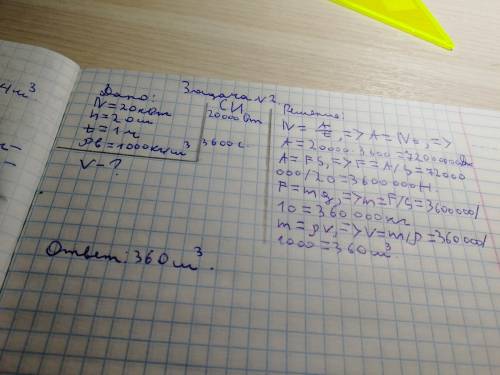 Задача №2.
Дано:
N=20кВт
h=20м
t=1ч
ρв=1000кг/м³
V-?
СИ
20000Вт
3600с.
Решение:
N=A/t,=>A=Nt,=>
A=20000·3600=72000000Вт
A=FS,=>F=A/S=72000
000/20=3600000Н.
F=mg,=>m=F/g=3600000/
10=360000кг
m=ρV,=>V=m/ρ=360000/
1000=360м³.
Ответ:360м³.